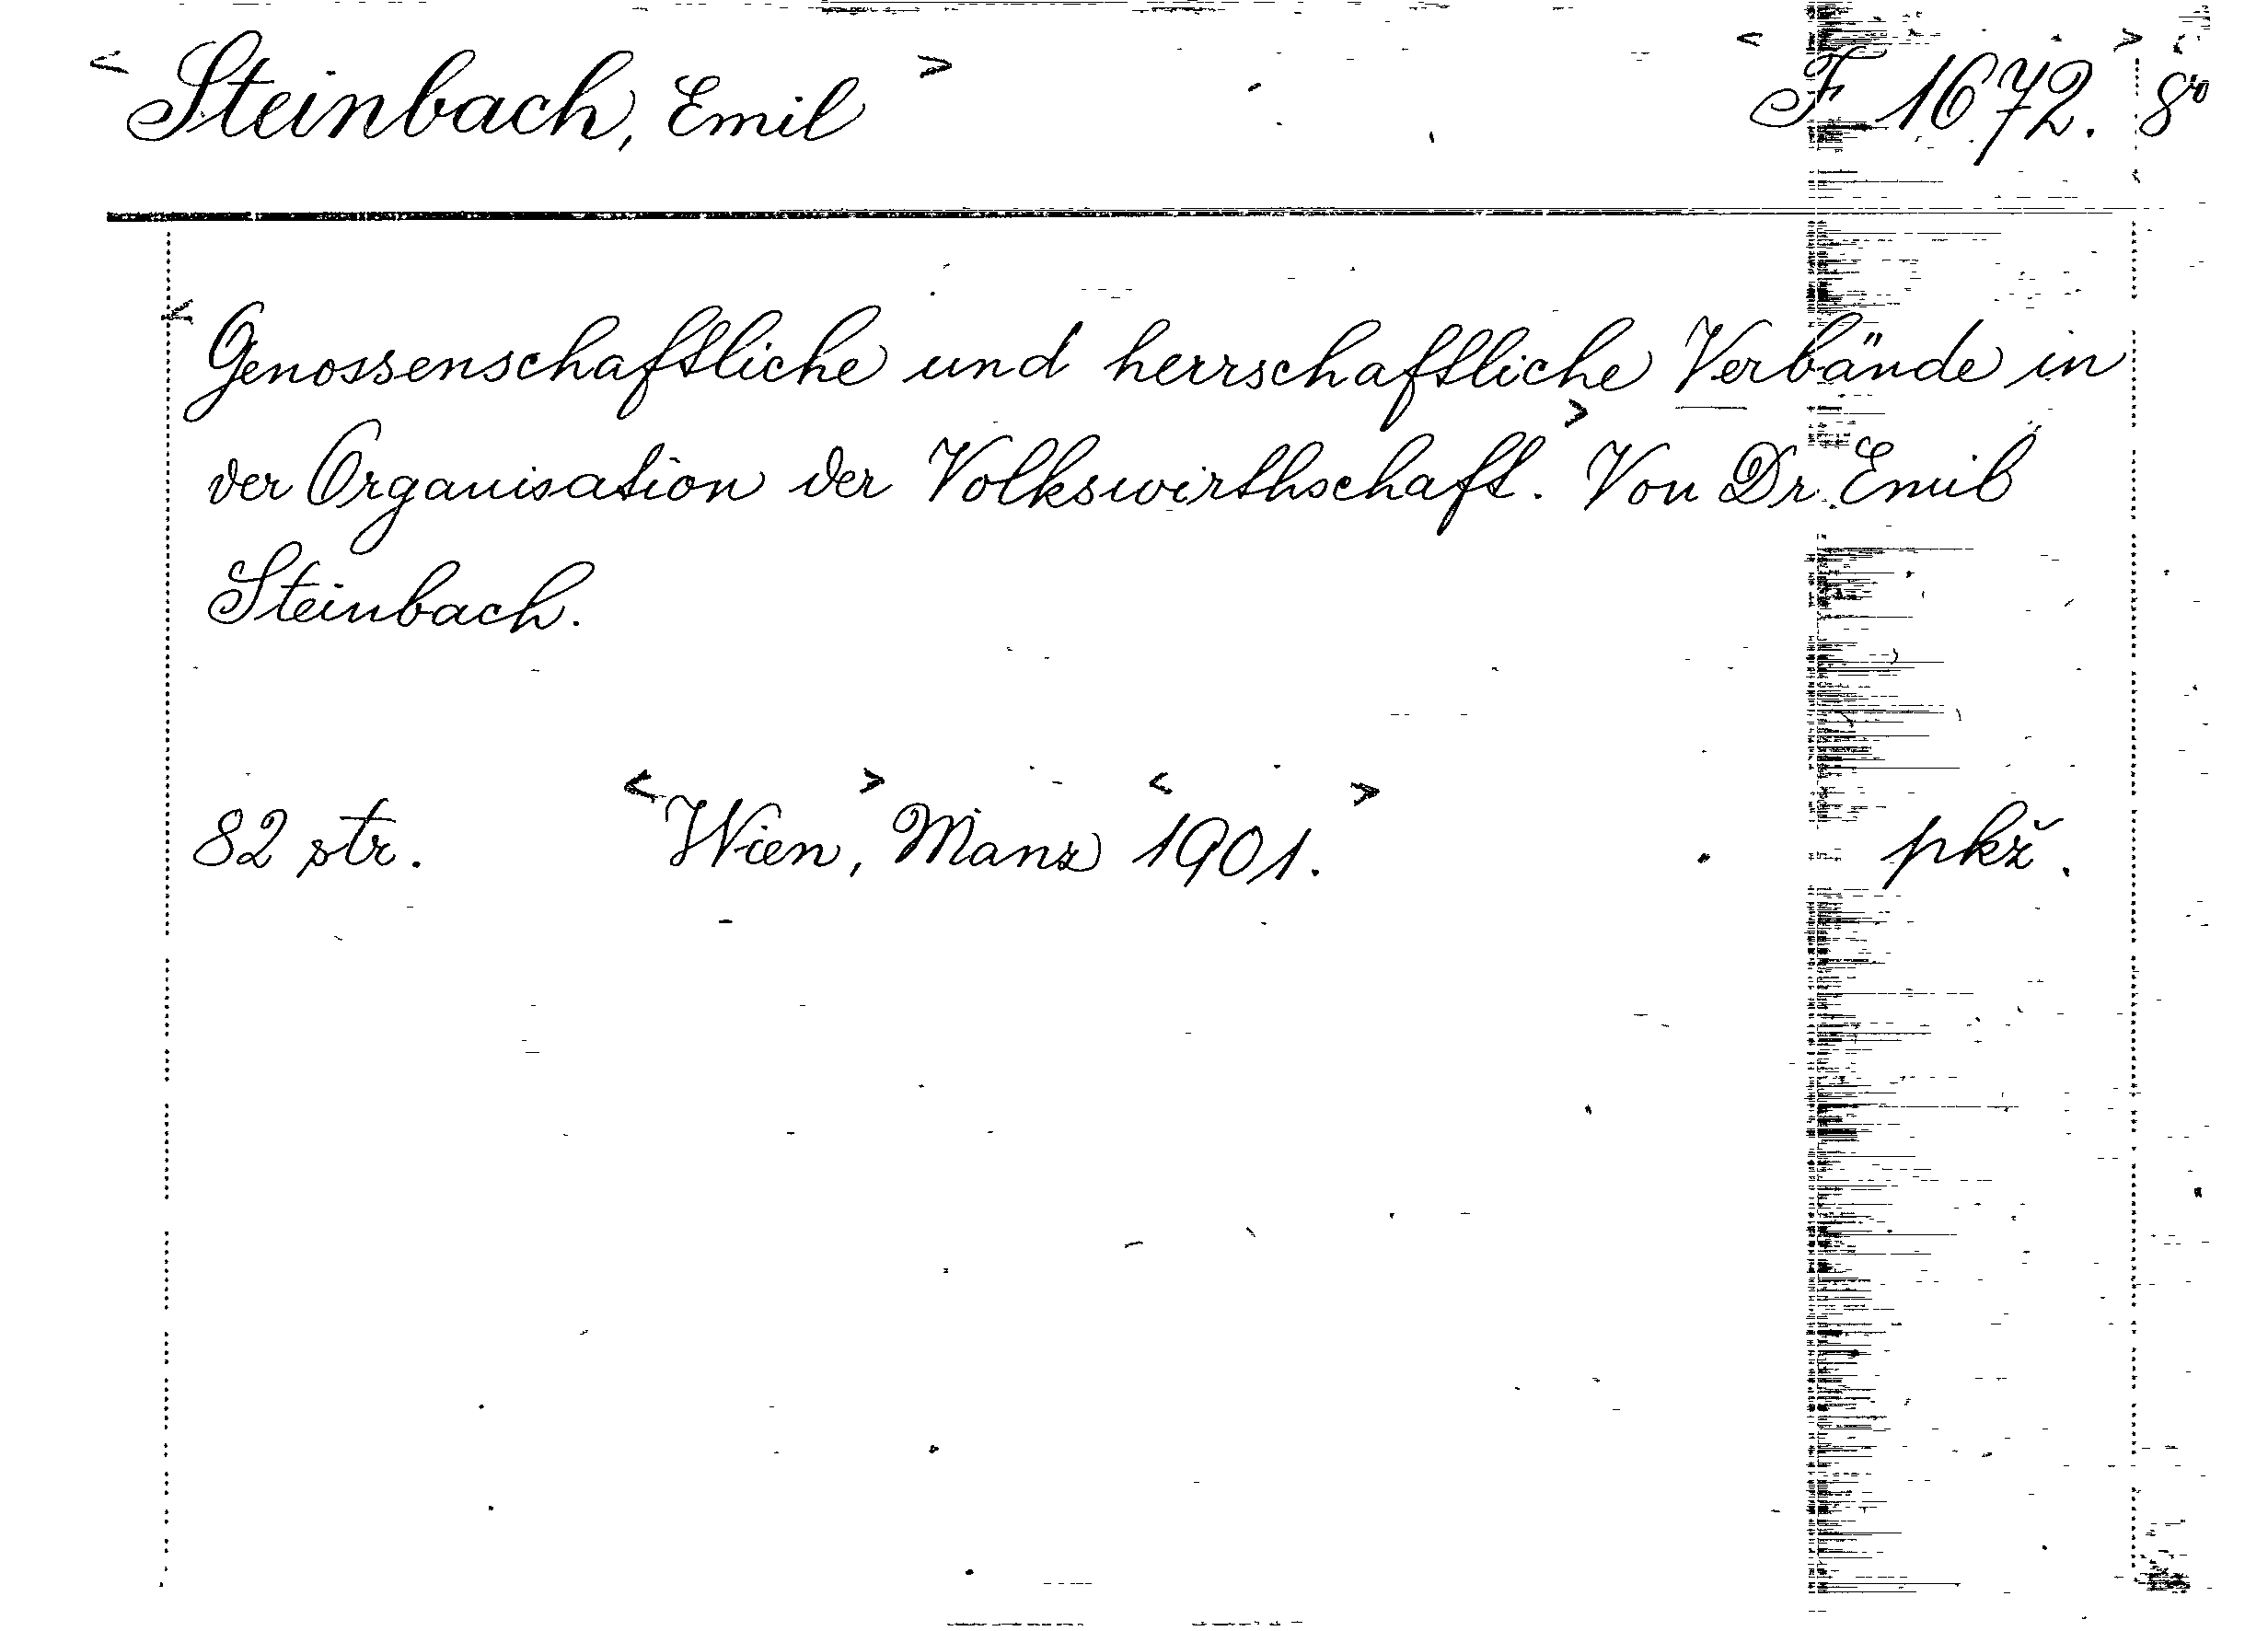 < Steinbach, Emil > < F 1672. > 8°
< Genossenschaftliche und herrschaftliche Verbände in
der Organisation der Volkswirthschaft. > Von Dr. Emil
Steinbach.
82 str. < Wien, > Manz < 1901. > pkž.